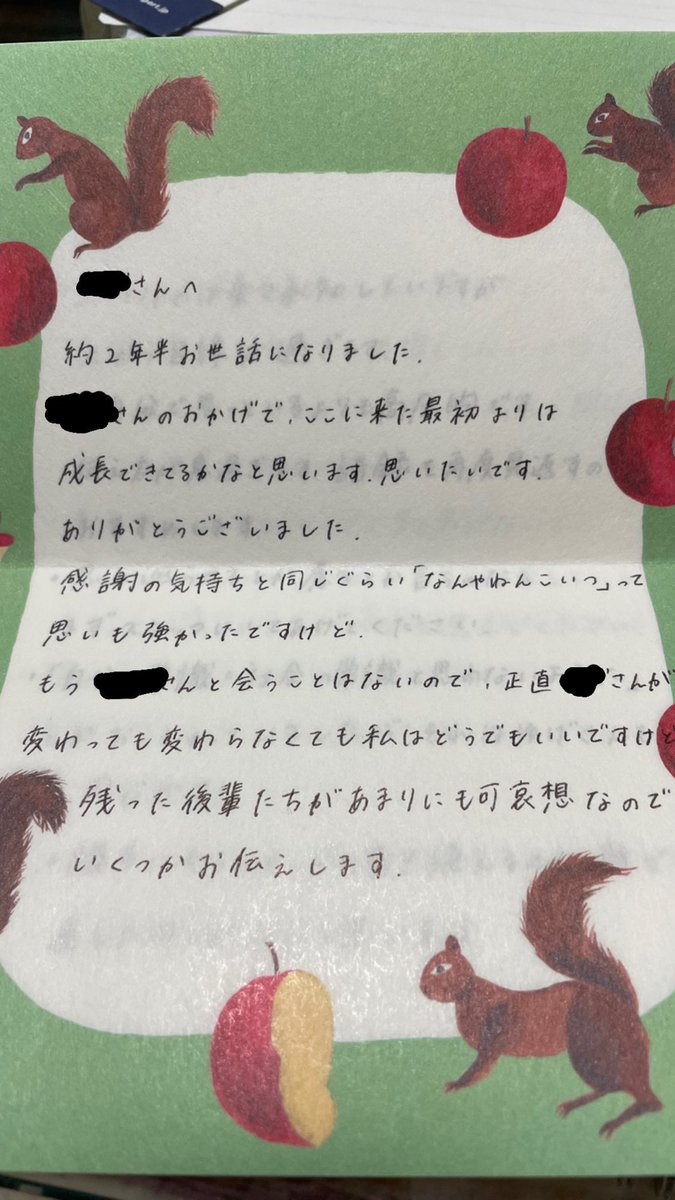 さんへ
約2年半お世話になりました.
さんのおかげで、ここに来た最初よりは
成長できてるかなと思います.思いたいです.
ありがとうございました.
感謝の気持ちと同じぐらい「なんやねんこいつ」って
思いも強かったですけど.
もう さんと会うことはないので、正直 さんが
変わっても変わらなくても私はどうでもいいですけど
残った後輩たちがあまりにも可哀想なので
いくつかお伝えします.